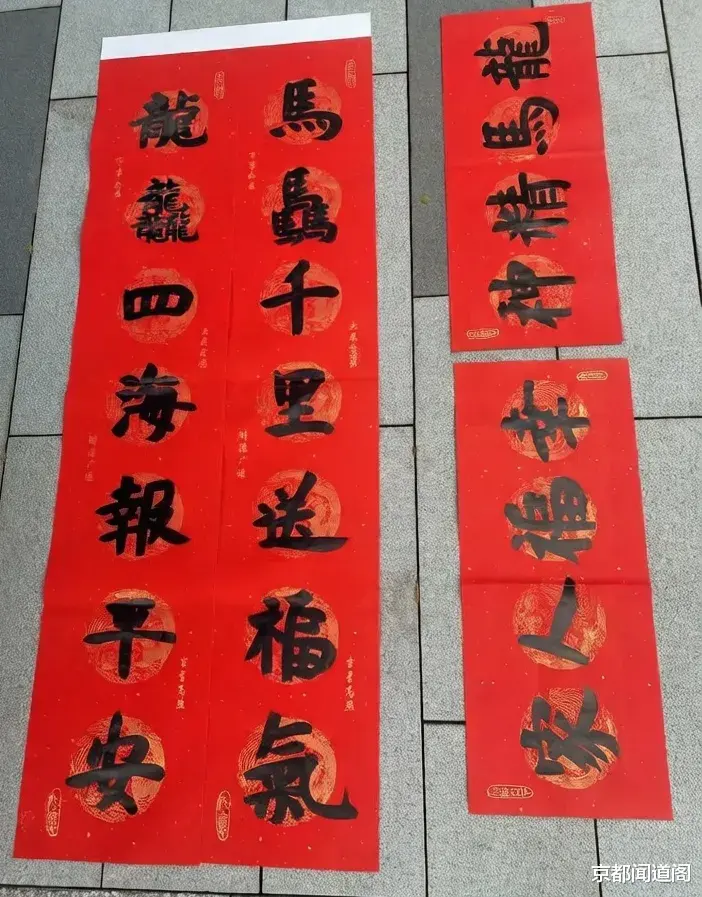 馬驫千里送福氣
龍龘四海報平安
龍馬精神
幸福人家
京都闻道阁